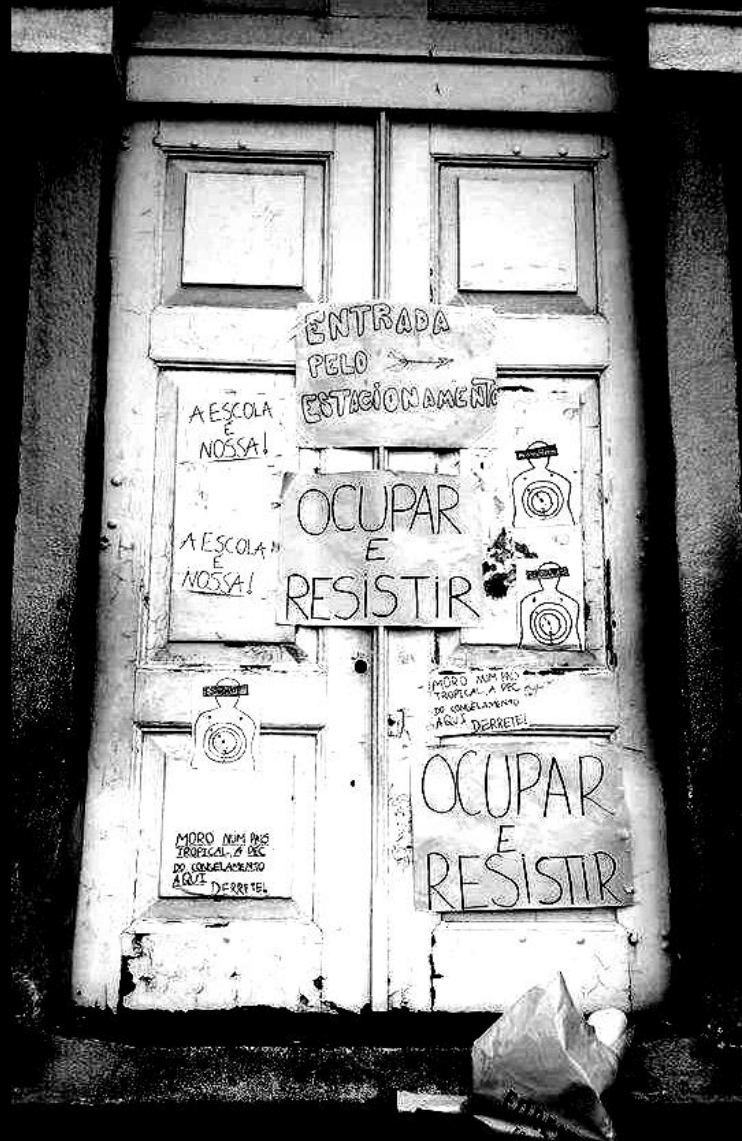 ENTRADA
PELO
ESTACIONAMENTO
A ESCOLA
É
NOSSA!
OCUPAR
E
RESISTIR
A ESCOLA
É
NOSSA!
MORO NUM PAIS
TROPICAL, A PEC
DO CONGELAMENTO
AQUI DERRETE!
OCUPAR
E
RESISTIR
MORO NUM PAIS
TROPICAL, A PEC
DO CONGELAMENTO
AQUI DERRETE!